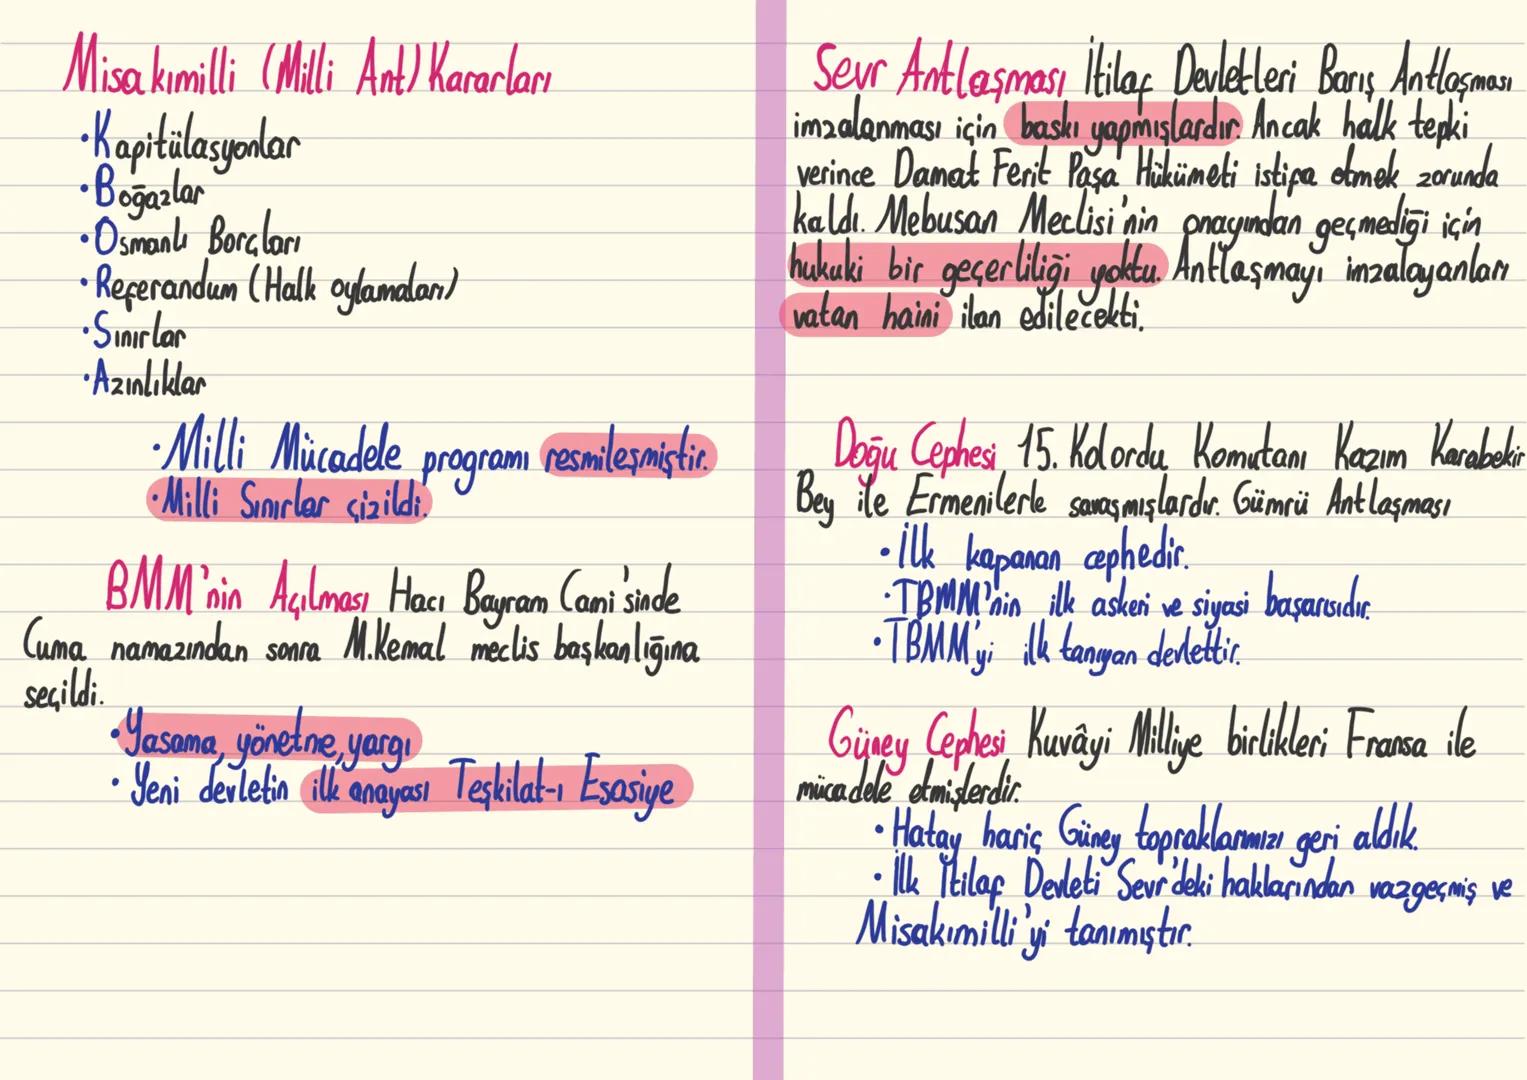 Misakımilli (Milli Ant) Kararları
·Kapitülasyonlar
·Boğazlar
·Osmanlı Borçları
·Referandum (Halk oylamaları)
·Sınırlar
·Azınlıklar
·Milli Mücadele programı resmileşmiştir.
·Milli Sınırlar çizildi.
BMM'nin Açılması Hacı Bayram Cami'sinde
Cuma namazından sonra M.Kemal meclis başkanlığına
seçildi.
·Yasama, yönetne, yargı
·Yeni devletin ilk anayası Teşkilat-ı Esasiye
Sevr Antlaşması İtilaf Devletleri Barış Antlaşması
imzalanması için baskı yapmışlardır. Ancak halk tepki
verince Damat Ferit Paşa Hükümeti istifa etmek zorunda
kaldı. Mebusan Meclisi'nin onayından geçmediği için
hukuki bir geçerliliği yoktu. Antlaşmayı imzalayanları
vatan haini ilan edilecekti.
Doğu Cephesi 15. Kolordu Komutanı Kazım Karabekir
Bey ile Ermenilerle savaşmışlardır. Gümrü Antlaşması
·İlk kapanan cephedir.
·TBMM'nin ilk askeri ve siyasi başarısıdır.
·TBMM'yi ilk tanıyan devlettir.
Güney Cephesi Kuvâyi Milliye birlikleri Fransa ile
mücadele etmişlerdir.
·Hatay hariç Güney topraklarımızı geri aldık.
·İlk İtilaf Devleti Sevr'deki haklarından vazgeçmiş ve
Misakımilli'yi tanımıştır.